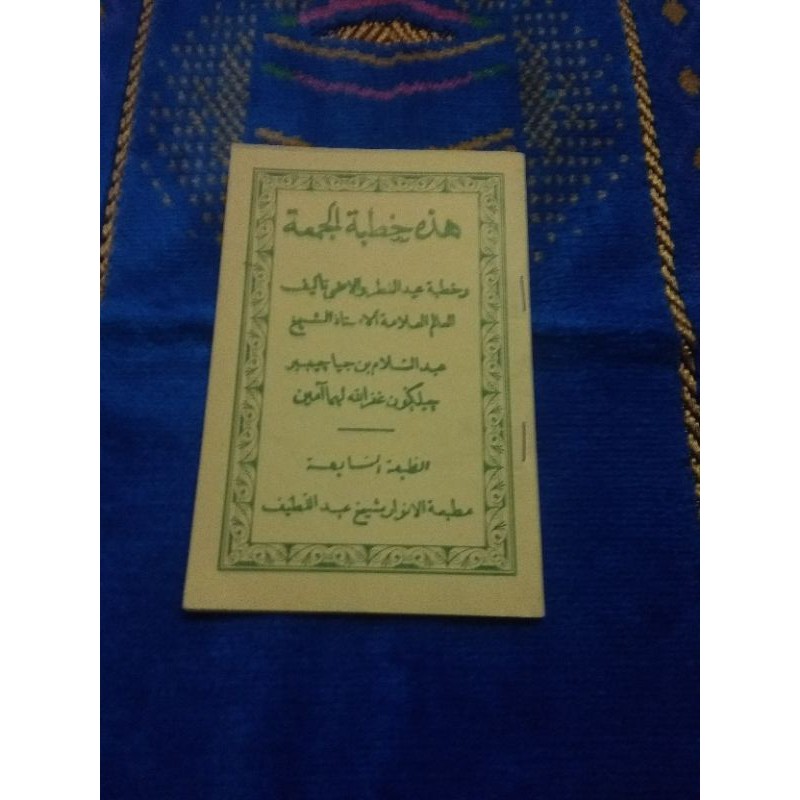 هذه خطبة الجمعة
وخطبة عيد الفطر والاضحى تأليف
العالم العلامة الاستاذ الشيخ
عبد السلام بن جيا
جيلكون غفر الله لهما آمين
الطبعة السابعة
مطبعة الانوار شيخ عبد اللطيف